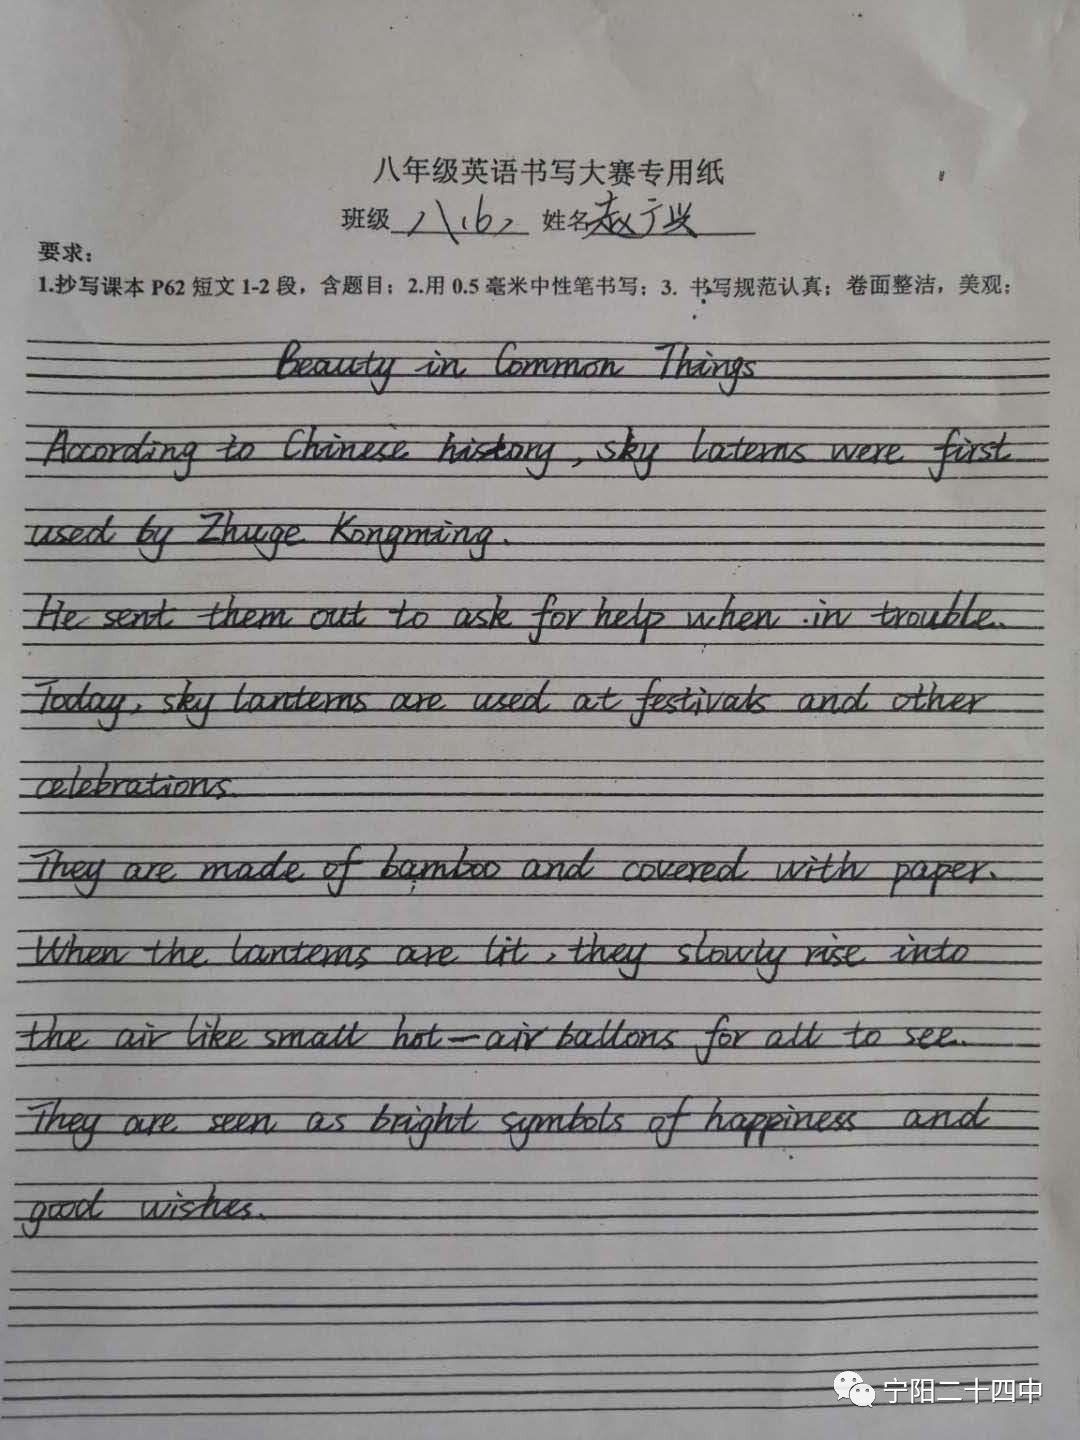 八年级英语书写大赛专用纸
班级 八(6) 姓名 赵广兴
要求：
1.抄写课本 P62 短文 1-2 段，含题目；2.用 0.5 毫米中性笔书写；3. 书写规范认真；卷面整洁，美观；
Beauty in Common Things
According to Chinese history, sky laterns were first
used by Zhuge Kongming.
He sent them out to ask for help when in trouble.
Today, sky lanterns are used at festivals and other
celebrations.
They are made of bamboo and covered with paper.
When the lanterns are lit, they slowly rise into
the air like small hot-air ballons for all to see.
They are seen as bright symbols of happiness and
good wishes.
宁阳二十四中